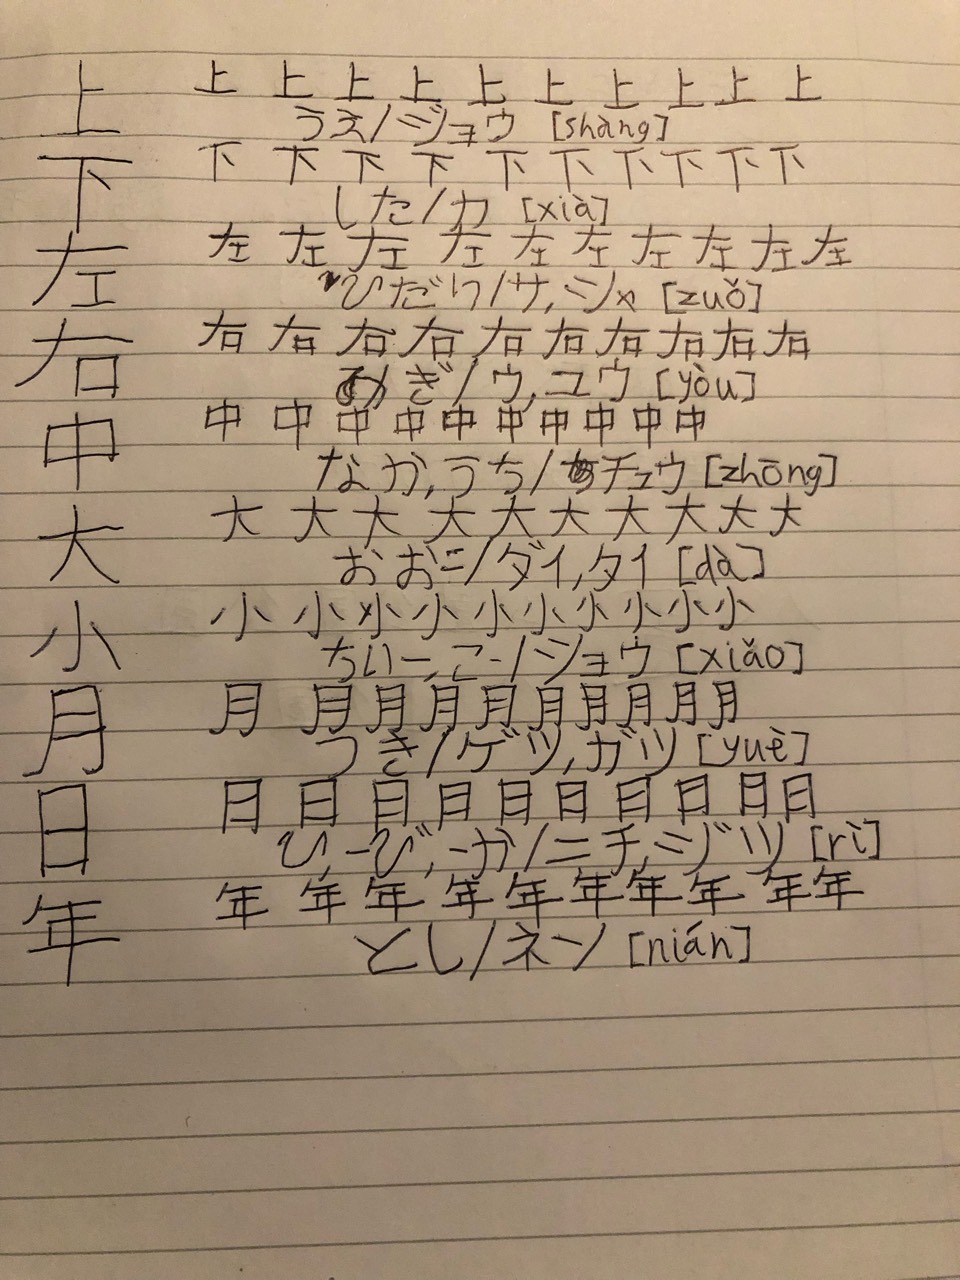 上 上 上 上 上 上 上 上 上 上 上
うえ/ジョウ [shàng]
下 下 下 下 下 下 下 下 下 下 下
した/カ [xià]
左 左 左 左 左 左 左 左 左 左 左
ひだり/サ,シャ [zuǒ]
右 右 右 右 右 右 右 右 右 右 右
みぎ/ウ,ユウ [yòu]
中 中 中 中 中 中 中 中 中 中 中
なか,うち/チュウ [zhōng]
大 大 大 大 大 大 大 大 大 大 大
おお-/ダイ,タイ [dà]
小 小 小 小 小 小 小 小 小 小 小
ちい-,こ-/ショウ [xiǎo]
月 月 月 月 月 月 月 月 月 月 月
つき/ゲツ,ガツ [yuè]
日 日 日 日 日 日 日 日 日 日 日
ひ,-び,-か/ニチ,ジツ [rì]
年 年 年 年 年 年 年 年 年 年 年
とし/ネン [nián]